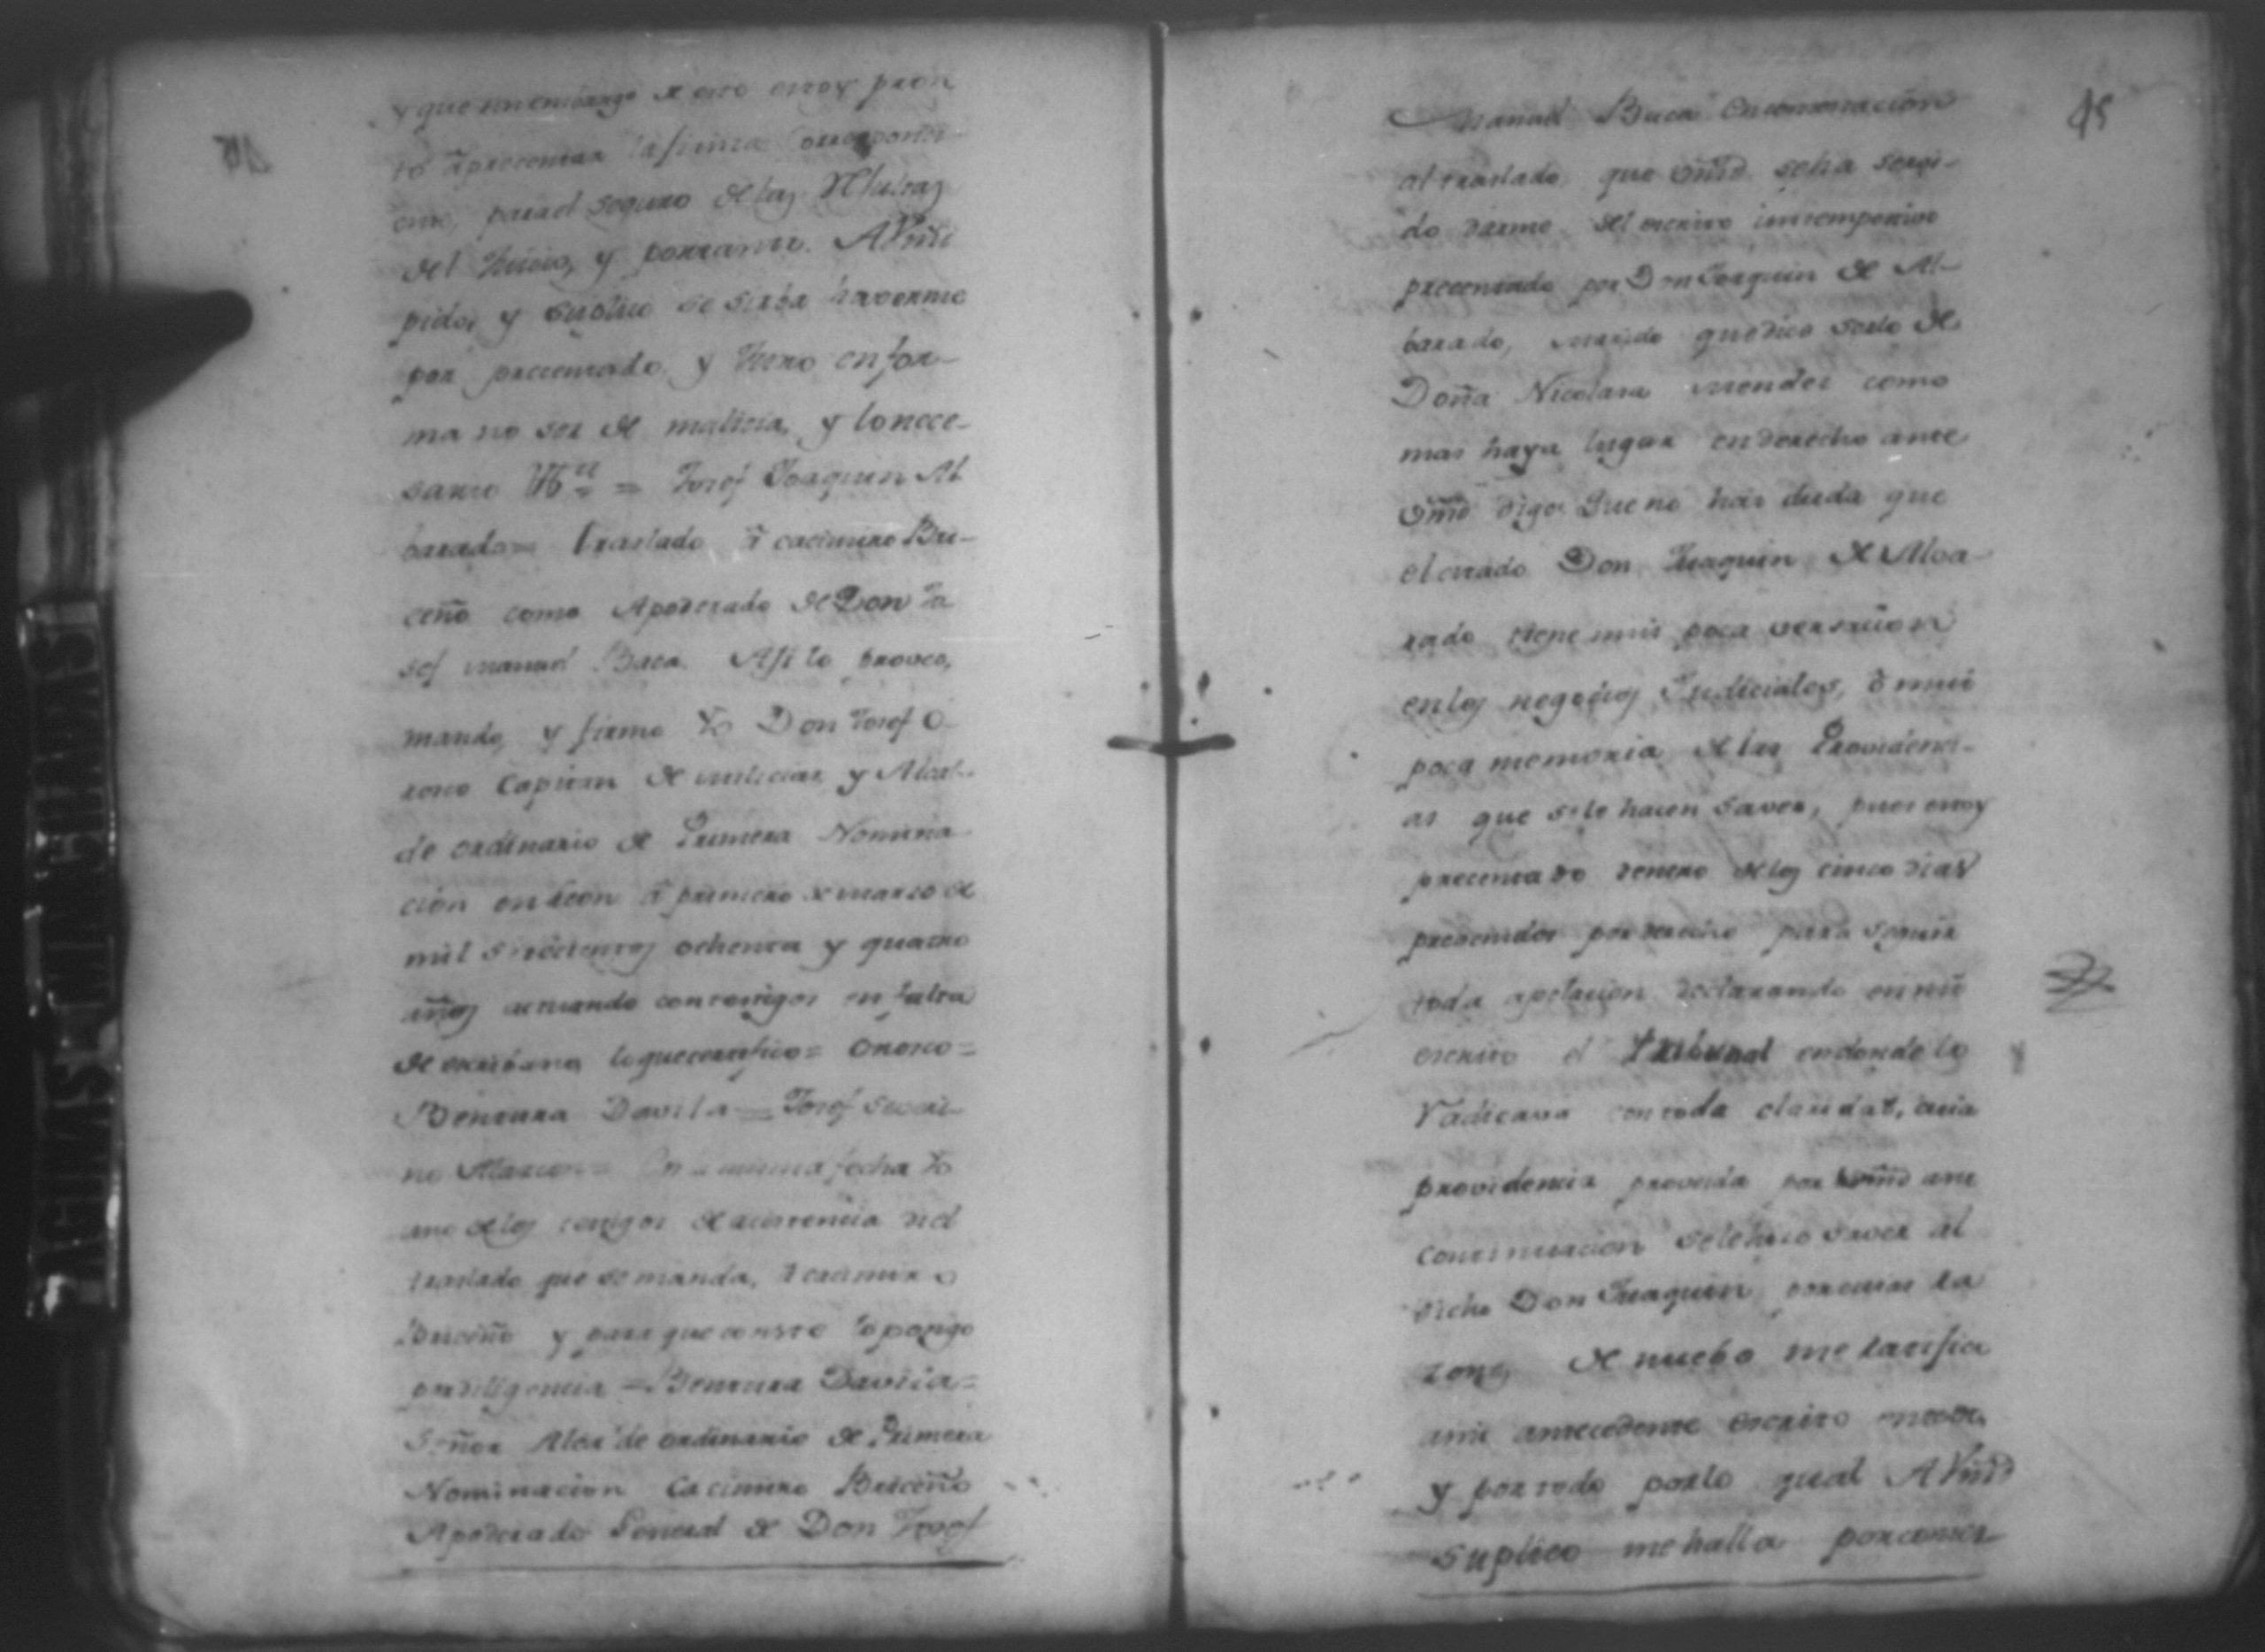 y que sin embargo de esto estoy pron
to â precentar la fianza correspondi-
ente, para el seguro de las
del Juicio, y portanto. A Vmd
pido, y suplico se sirba haverme
por precentado, y Juro en for-
ma no ser de malicia, y lo nece-
sario = Josef Joaquin Al
barado = Traslado â cacimiro Bri-
ceño como Apoderado de Don Jo
sef manuel Baca. Asi lo proveo,
mando, y firmo Yo Don Josef O-
rosco Capitan de milicias, y Alcal-
de ordinario de Primera Nomina
cion en Leon â primero de marzo de
mil setecientos ochenta y quatro
años actuando con testigos en falta
de escribano, lo que certifico = Orosco =
Bentura Davila = Josef
no Alarcon = En la misma fecha Yo
uno de los testigos de acistencia di el
traslado que se manda, â cacimiro
Briceño y para que conste lo pongo
por diligencia = Bentura Davila =
Señor Alcalde ordinario de Primera
Nominacion Cacimiro Briceño
Apoderado General de Don Josef
45
Manuel Baca en contestacion
al traslado que Vmd seha servi-
do darme del escrito intempestivo
precentado por Don Joaquin de Al-
barado, marido que dice serlo de
Doña Nicolasa mendes como
mas haya lugar en derecho ante
Vmd digo: Que no hai duda que
el citado Don Juaquin de Alva-
rado tiene mui poca versacion
en los negocios Judiciales, ô mui
poca memoria de las Providenci-
as que se le hacen saver, pues estoy
precentado dentro de los cinco dias
prevenidos por derecho para seguir
toda apelacion declarando en mi
escrito el Tribunal en donde la
radicava con toda claridad, cuia
providencia proveida por Vmd
continuacion se le hizo saver al
dicho Don Juaquin, por cuias ra
zones de nuebo me ratifico
a mi antecedente escrito
y por todo por lo qual A Vmd
suplico me halla por